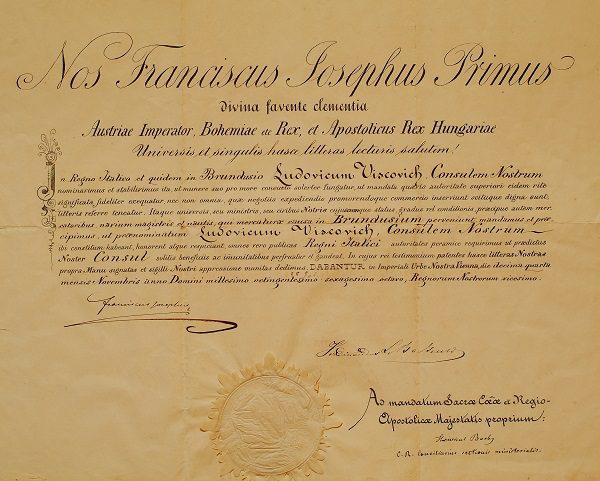 Nos Franciscus Josephus Primus
divina favente clementia
Austriae Imperator, Bohemiae etc Rex, et Apostolicus Rex Hungariae
Universis et singulis hasce litteras lecturis, salutem!
In Regno Italico et quidem in Brundisio Ludovicum Viscovich, Consulem Nostrum
nominavimus et stabilivimus ita, ut munere suo pro more consueto solerter fungatur, ut mandata quaevis autoritate superiori eidem rite
significata, fideliter exequatur, nec non omnia, quae negotiis expediendis promovendoque commercio inserviunt
litteris referre teneatur. Itaque universis, seu ministris, seu civibus Nostris cujuscunque status gradus vel conditionis, praecipue autem mer-
catoribus navium magistris et nautis, qui mercaturae causa in Brundusium perveniunt mandamus et prae-
cipimus, ut praenominatum Ludovicum Viscovich, Consulem Nostrum
ibi constitum habeant, honorent atque respiciant, omnes vero publicas Regni Italici autoritates peramice requirimus ut praedictus
Noster Consul solitis beneficiis ac imunitatibus perfruatur et gaudeat. In cujus rei testimonium patentes hasce litteras Nostras
propra Manu signatas et sigilli Nostri appressione munitas dedimus. DABANTUR in Imperiali Urbe Nostra Vienna, die decima quarta
mensis Novembris Anno Domini millesimo octingentesimo sexagesimo octavo, Regnorum Nostrorum vicesimo.
Franciscus Josephus
Ad mandatum Sacrae Caes: et Regio-
Apostolicae Majestatis proprium:
C. R. Consiliarius sectionis ministerialis.